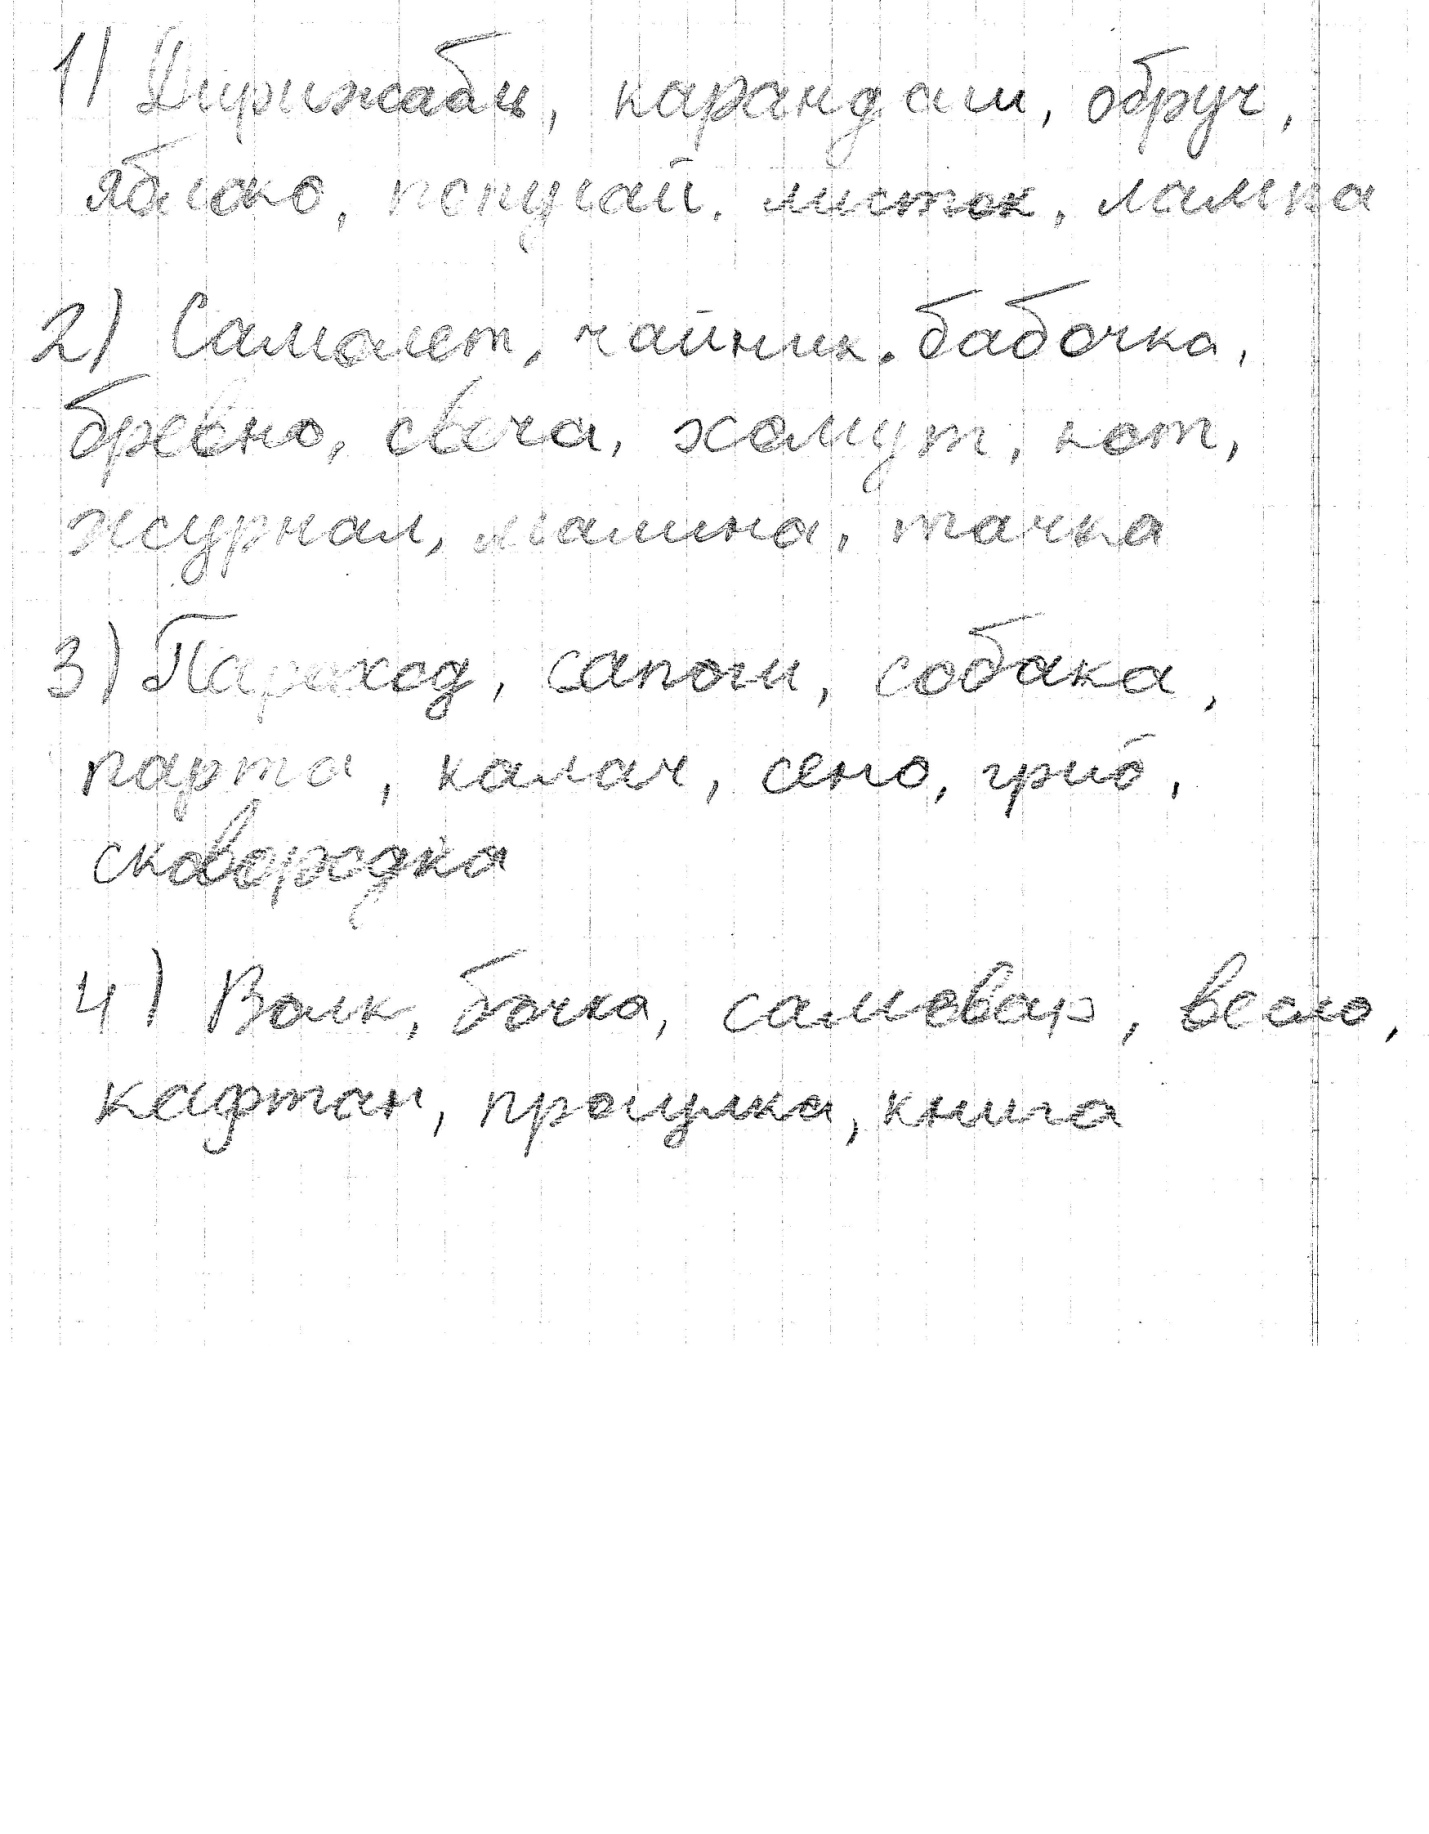 1) Дирижабль, карандаш, обруч,
яблоко, попугай. листок, лампа
2) Самолет, чайник. бабочка,
бревно, свеча, хомут, кот,
журнал, малина, тачка
3) Пароход, сапоги, собака,
парта, калач, сено, гриб,
сковородка
4) Волк, бочка, самовар, весло,
кафтан, прогулка, книга